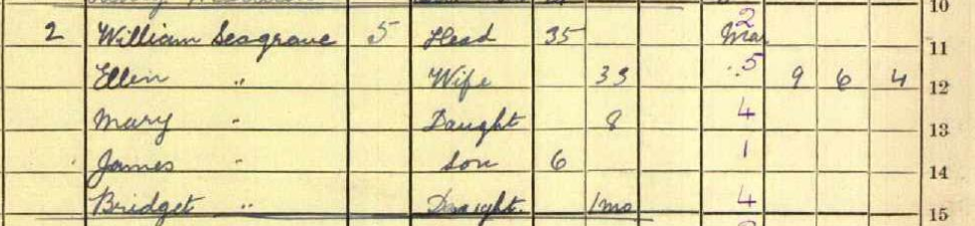 10
2 William Seagrave 5 Head 35 2 Mar 11
Ellen " Wife 33 " 5 9 6 4 12
Mary " Daught 8 4 13
James " Son 6 1 14
Bridget " Daught. 1mo 4 15